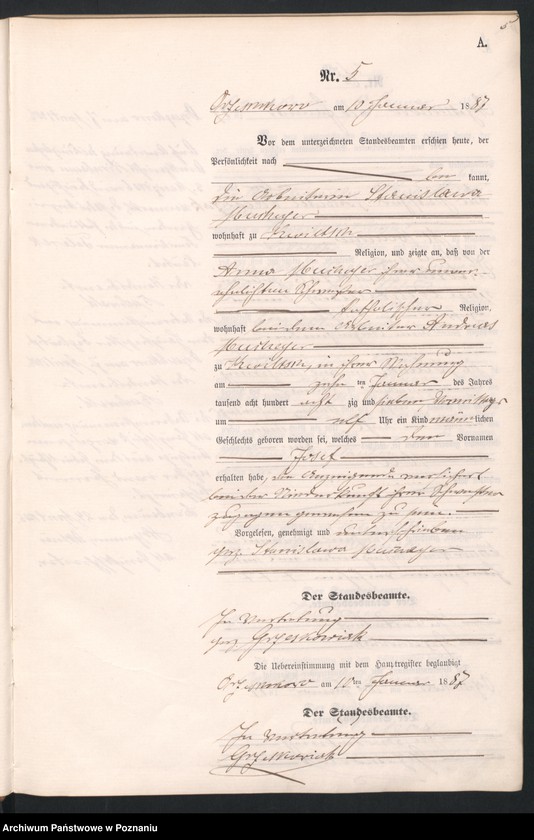 A.
5
Nr. 5
am 10 Januar 1887
Vor dem unterzeichneten Standesbeamten erschien heute, der
Persönlichkeit nach
be kannt,
die Arbeiterin Stanislawa
wohnhaft zu
Religion, und zeigte an, daß von der
Anna ihrer unver-
ehelichten Schwester
katholischer Religion,
wohnhaft bei dem Arbeiter Andreas
zu in ihrer Wohnung
am zehn ten Januar des Jahres
tausend acht hundert acht zig und sieben Vormittags
um elf Uhr ein Kind männ lichen
Geschlechts geboren worden sei, welches den Vornamen
Josef
erhalten habe, die Anzeigende versichert
bei der Niederkunft ihrer Schwester
zugegen gewesen zu sein.
Vorgelesen, genehmigt und unterschrieben
gez. Stanislawa
Der Standesbeamte.
In Vertretung
gez. Grzeskowiak
Die Uebereinstimmung mit dem Hauptregister beglaubigt
am 10 ten Januar 1887
Der Standesbeamte.
In Vertretung
Grzeskowiak
Archiwum Państwowe w Poznaniu